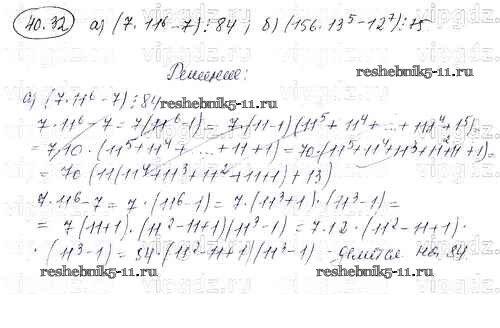 40.32 а) (7·11⁶-7)⋮84; б) (156·13⁵-12⁷)⋮75
Решение:
reshebnik5-11.ru
а) (7·11⁶-7)⋮84
7·11⁶-7=7(11⁶-1)=7·(11-1)(11⁵+11⁴+...+
=7·10·(11⁵+11⁴+...+11+1)=70·(11⁵+11⁴+11³+11²+11+1)=
=70(11(11⁴+11³+11²+11+1)+13)
7·11⁶-7=7·(11⁶-1)=7·(11³+1)·(11³-1)=
=7(11+1)·(11²-11+1)(11³-1)=7·12·(11²-11+1)·
·(11³-1)=84·(11²-11+1)(11³-1) - делится на 84
reshebnik5-11.ru
reshebnik5-11.ru